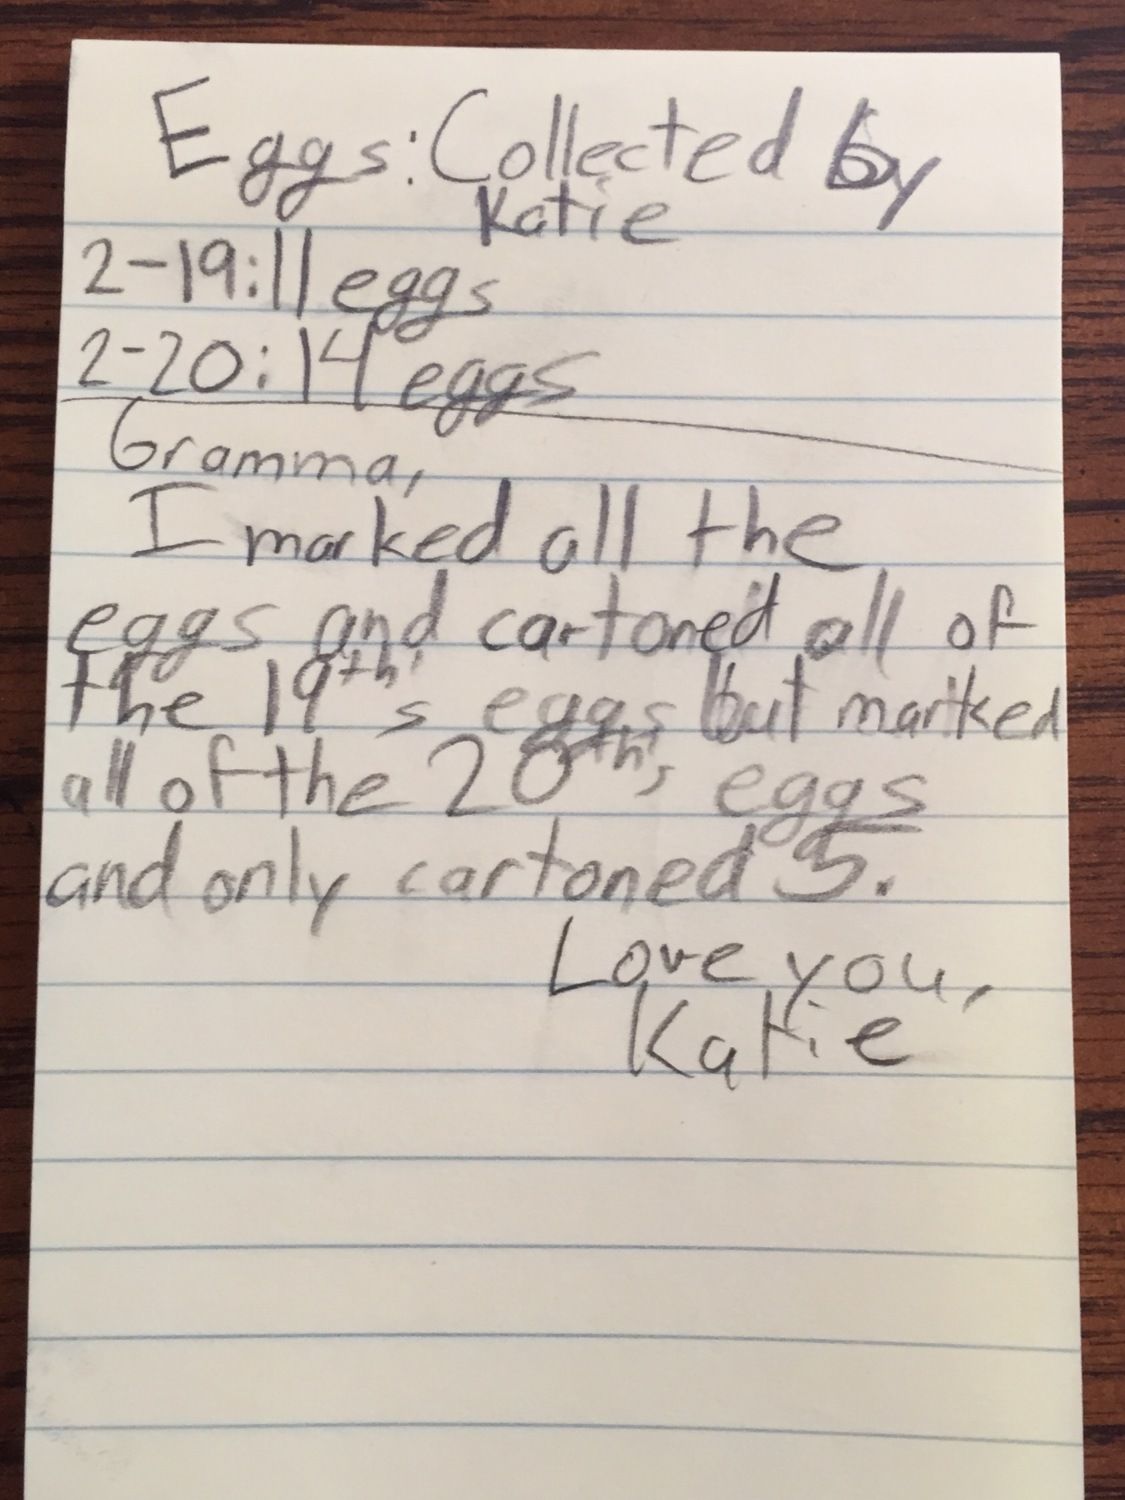 Eggs: Collected by
Katie
2-19: 11 eggs
2-20: 14 eggs
Gramma,
I marked all the
eggs and cartoned all of
the 19th's eggs but marked
all of the 20th's eggs
and only cartoned 5.
Love you,
Katie